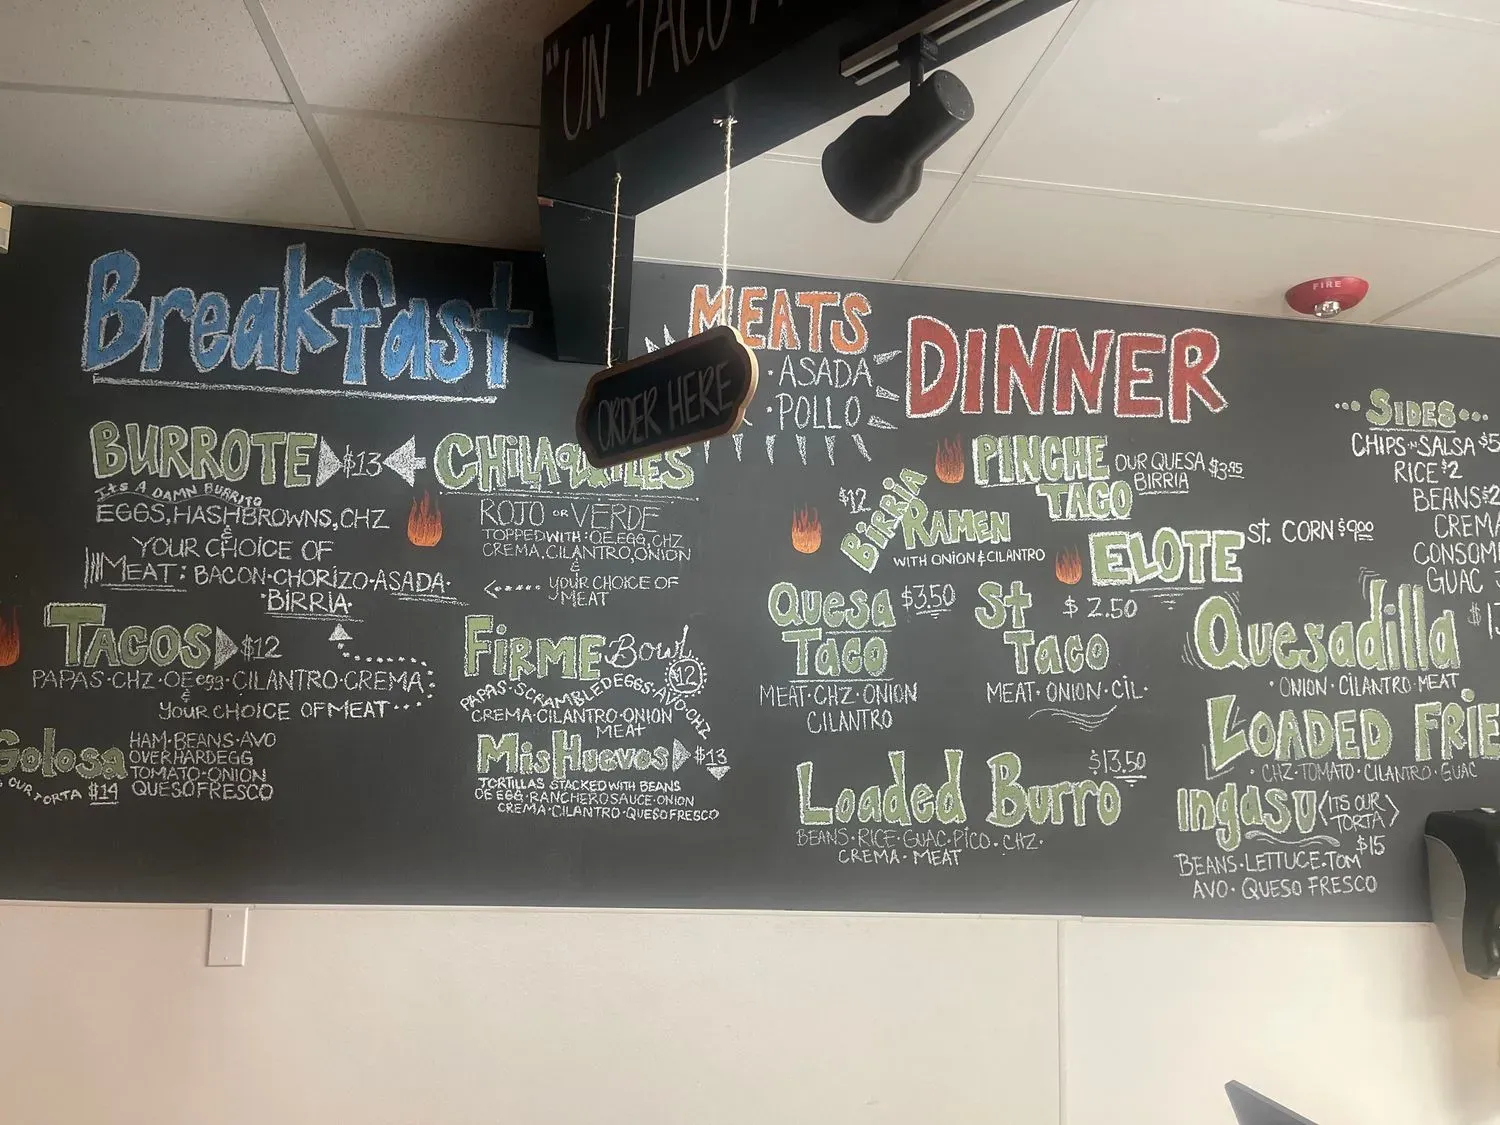 "UN TACO
ORDER HERE
FIRE
Breakfast
BURROTE $13
ITS A DAMN BURRITO
EGGS, HASHBROWNS, CHZ
&
YOUR CHOICE OF
MEAT: BACON·CHORIZO·ASADA·
·BIRRIA·
TACOS $12
PAPAS·CHZ·OEegg·CILANTRO·CREMA
&
YOUR CHOICE OF MEAT
Golosa
OUR TORTA $14
HAM·BEANS·AVO
OVERHARDEGG
TOMATO·ONION
QUESOFRESCO
CHILAQUILES
ROJO OR VERDE
TOPPED WITH: OE EGG, CHZ
CREMA, CILANTRO, ONION
&
YOUR CHOICE OF
MEAT
FIRME Bowl
$12
PAPAS·SCRAMBLED EGGS·AVO·CHZ
CREMA·CILANTRO·ONION
MEAT
MisHuevos $13
TORTILLAS STACKED WITH BEANS
OE EGG·RANCHERO SAUCE·ONION
CREMA·CILANTRO·QUESOFRESCO
MEATS
·ASADA
·POLLO
DINNER
PINCHE
TACO
OUR QUESA
BIRRIA
$3.95
$12
BIRRIA
RAMEN
WITH ONION & CILANTRO
ELOTE
ST. CORN $9.00
Quesa
Taco
$3.50
MEAT·CHZ·ONION
CILANTRO
St
Taco
$2.50
MEAT·ONION·CIL·
Loaded Burro
$13.50
BEANS·RICE·GUAC·PICO·CHZ·
CREMA·MEAT
SIDES
CHIPS N SALSA $5
RICE $2
BEANS $2
CREMA
GUAC
Quesadilla
·ONION·CILANTRO·MEAT
LOADED
·CHZ·TOMATO·CILANTRO·GUAC
INGASU <ITS OUR
TORTA>
$15
BEANS·LETTUCE·TOM
AVO·QUESO FRESCO